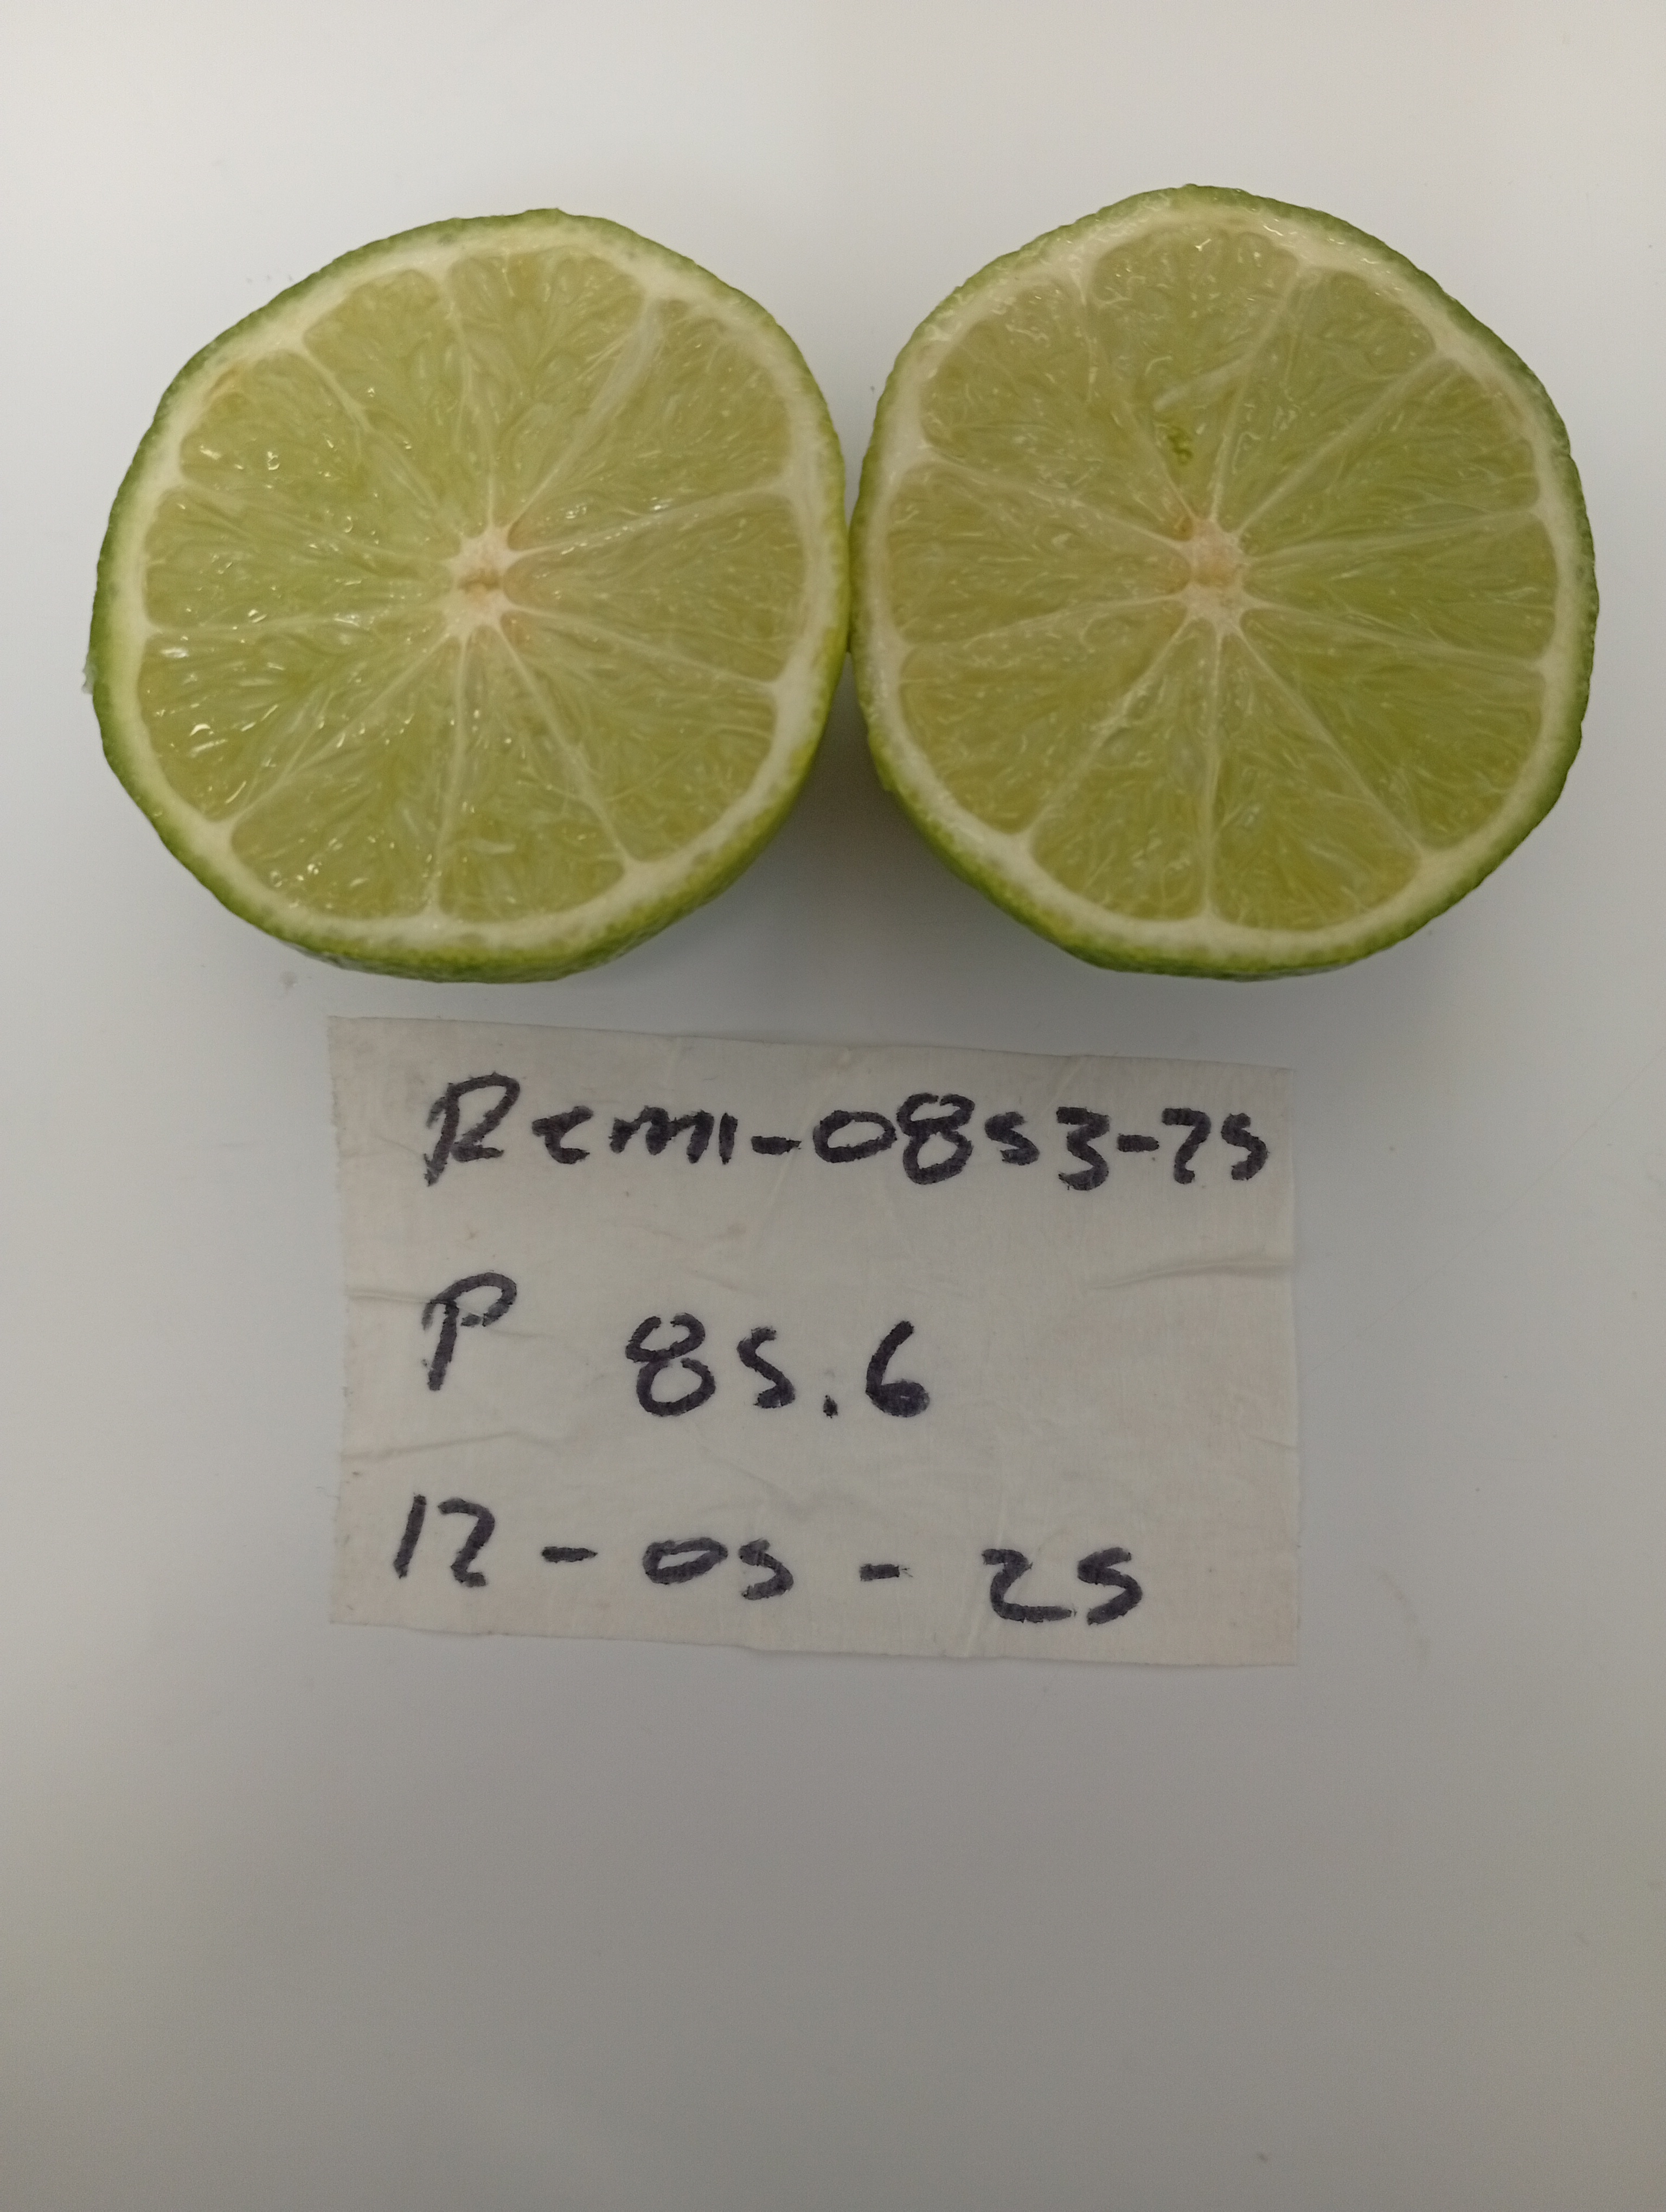 Remi-0853-25
P 85.6
12-05-25